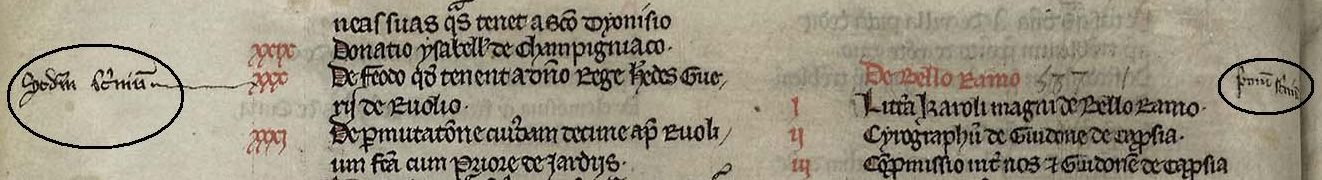 neas suas qs tenet a sco Dyonisio
xxix Donatio ysabell' de Champigniaco.
Scdm scriniu xxx De feodo qd tenent a dno Rege hedes Gue,
rij de Ruolio.
xxxj De permutatōne cuiusdam decime ap Ruoli,
um fca cum Priore de Jardijs.
De Bello Ramo 587
Primu scriniu
I Littra Karoli magni de Bello Ramo.
ij Cyrographū de Guidone de Capsia.
iij Compmissio int nos & Guidone de Capsia